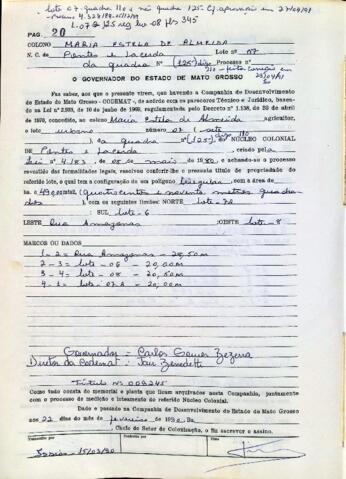 lote 07 quadra 110 e não quadra 125. Cf. aprovação em 27/04/98
L. 07 Q 125 reg. liv 08 fls 345
PAG. 20
COLONO MARIA ESTELA DE ALMEIDA
N. C. de Pontes e Lacerda Lote nº 07
da quadra (125) digo
O GOVERNADOR DO ESTADO DE MATO GROSSO
Faz saber, aos que o presente virem, que havendo a Companhia de Desenvolvimento
do Estado de Mato Grosso - CODEMAT -, de acordo com os pareceres Técnico e Jurídico, basea-
do na Lei nº 2.083, de 10 de junho de 1963, regulamentada pelo Decreto nº 1.138, de 30 de abril
de 1970, concedido, ao colono Maria Estela de Almeida agricultor,
o lote urbano número 07 (sete
da quadra (125) NÚCLEO COLONIAL
DE Pontes e Lacerda criado pela
Lei nº 4.183, de 08 de maio de 1980, e achando-se o processo
revestido das formalidades legais, resolveu conferir-lhe o presente título de propriedade do
referido lote, o qual tem a configuração de um polígono irregular, com a área de
490,00m2 (Quatrocentos e noventa metros quadra
dos), com os seguintes limites: NORTE lote-7A
; SUL lote-6
LESTE Rua Amazonas ;OESTE lote-8
MARCOS OU DADOS
1-2= Rua Amazonas - 28,50m
2-3= lote-06 - 20,00m
3-4= lote-08 - 20,50m
4-1= lote-07.A - 20,00m
Governador = Carlos Gomes Bezerra
Diretor da Codemat = Jair Benedetti
Título nº 009245
Como tudo consta do memorial e planta que ficam arquivados nesta Companhia, juntamente
com o processo de medição e loteamento do referido Núcleo Colonial.
Dado e passado na Companhia de Desenvolvimento do Estado de Mato Grosso
aos 22 dias do mês de fevereiro de 1990. Eu
, Chefe do Setor de Colonização, o fiz escrever e assino.
15/03/90